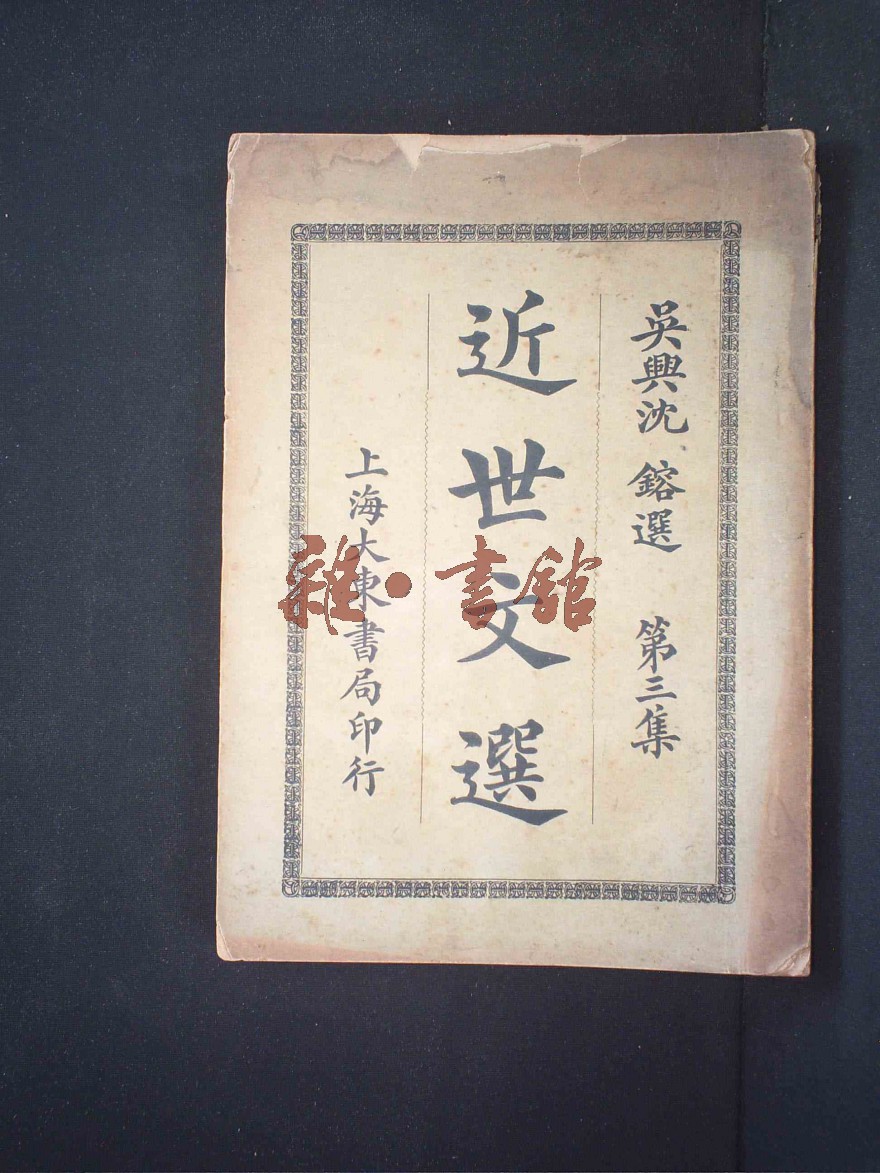 吳興沈鎔選 第三集
近世文選
上海大東書局印行
雜·書館